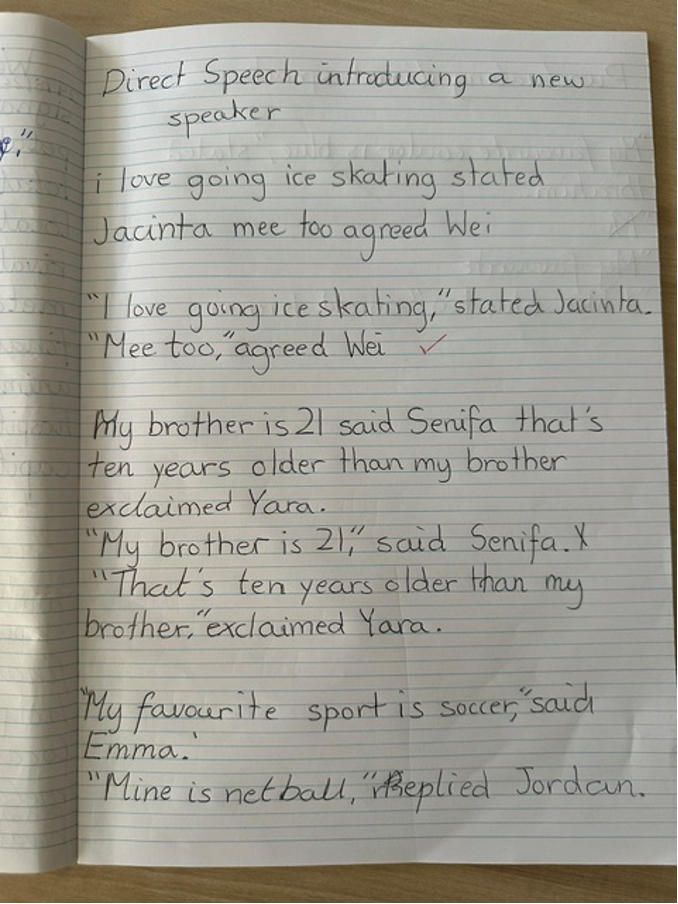 Direct Speech introducing a new
speaker
i love going ice skating stated
Jacinta mee too agreed Wei
"I love going ice skating," stated Jacinta.
"Mee too," agreed Wei
My brother is 21 said Senifa that's
ten years older than my brother
exclaimed Yara.
"My brother is 21," said Senifa. X
"That's ten years older than my
brother," exclaimed Yara.
"My favourite sport is soccer," said
Emma.
"Mine is netball," replied Jordan.